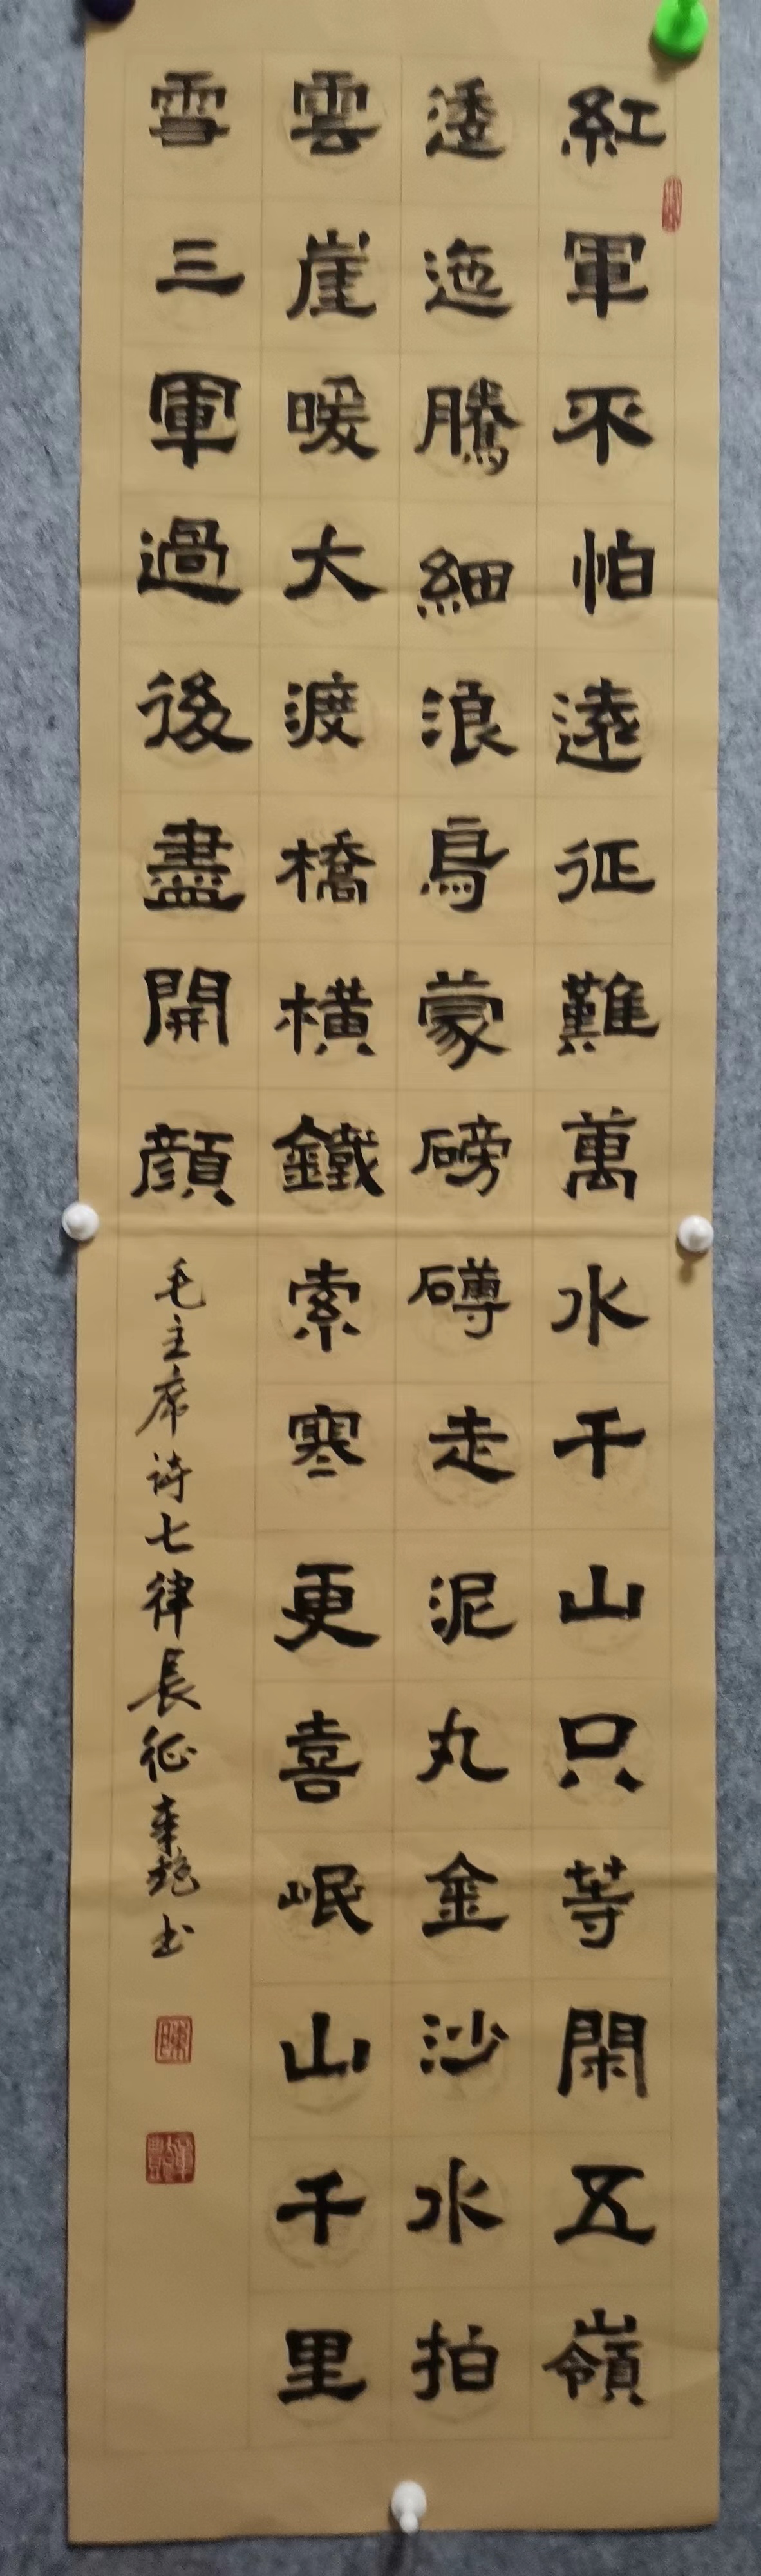 紅軍不怕遠征難萬水千山只等閑五嶺
逶迤騰細浪烏蒙磅礴走泥丸金沙水拍
雲崖暖大渡橋橫鐵索寒更喜岷山千里
雪三軍過後盡開顏
毛主席诗七律長征书
陳